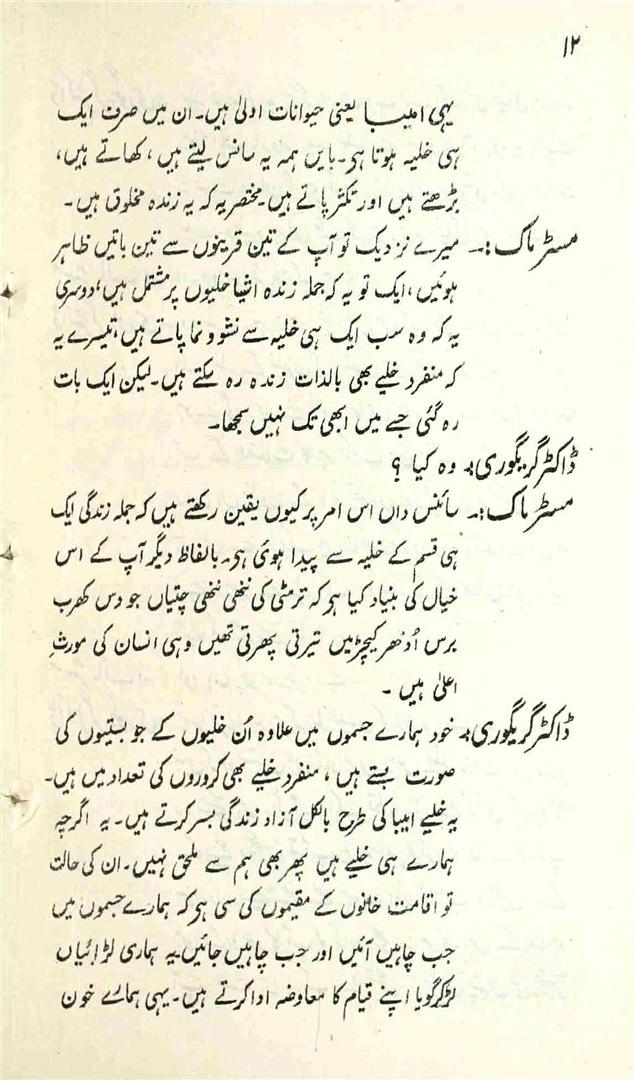 ۱۲
یہی امیبا یعنی حیوانات اولیٰ ہیں۔ ان میں صرف ایک
ہی خلیہ ہوتا ہی۔ بایں ہمہ یہ سانس لیتے ہیں، کھاتے ہیں،
بڑھتے ہیں اور تکثر پاتے ہیں۔ مختصر یہ کہ یہ زندہ مخلوق ہیں۔
مسٹر ماک:۔ میرے نزدیک تو آپ کے تین قرینوں سے تین باتیں ظاہر
ہوئیں، ایک تو یہ کہ جملہ زندہ اشیا خلیوں پر مشتمل ہیں، دوسری
یہ کہ وہ سب ایک ہی خلیہ سے نشو و نما پاتے ہیں، تیسرے یہ
کہ منفرد خلیے بھی بالذات زندہ رہ سکتے ہیں۔ لیکن ایک بات
رہ گئی جسے میں ابھی تک نہیں سمجھا۔
ڈاکٹر گریگوری:۔ وہ کیا ؟
مسٹر ماک:۔ سائنس داں اس امر پر کیوں یقین رکھتے ہیں کہ جملہ زندگی ایک
ہی قسم کے خلیہ سے پیدا ہوئی ہی۔ بالفاظ دیگر آپ کے اس
خیال کی بنیاد کیا ہو کہ ترمٹی کی ننھی ننھی چتیاں جو دس کھرب
برس اُدھر کیچڑ میں تیرتی پھرتی تھیں وہی انسان کی مورثِ
اعلیٰ ہیں ۔
ڈاکٹر گریگوری:۔ خود ہمارے جسموں میں علاوہ اُن خلیوں کے جو بستیوں کی
صورت بستے ہیں، منفرد خلیے بھی کروروں کی تعداد میں ہیں۔
یہ خلیے امیبا کی طرح بالکل آزاد زندگی بسر کرتے ہیں۔ یہ اگرچہ
ہمارے ہی خلیے ہیں پھر بھی ہم سے ملحق نہیں۔ ان کی حالت
تو اقامت خانوں کے مقیموں کی سی ہی کہ ہمارے جسموں میں
جب چاہیں آئیں اور جب چاہیں جائیں۔ یہ ہماری لڑائیاں
لڑکر گویا اپنے قیام کا معاوضہ ادا کرتے ہیں۔ یہی ہمارے خون